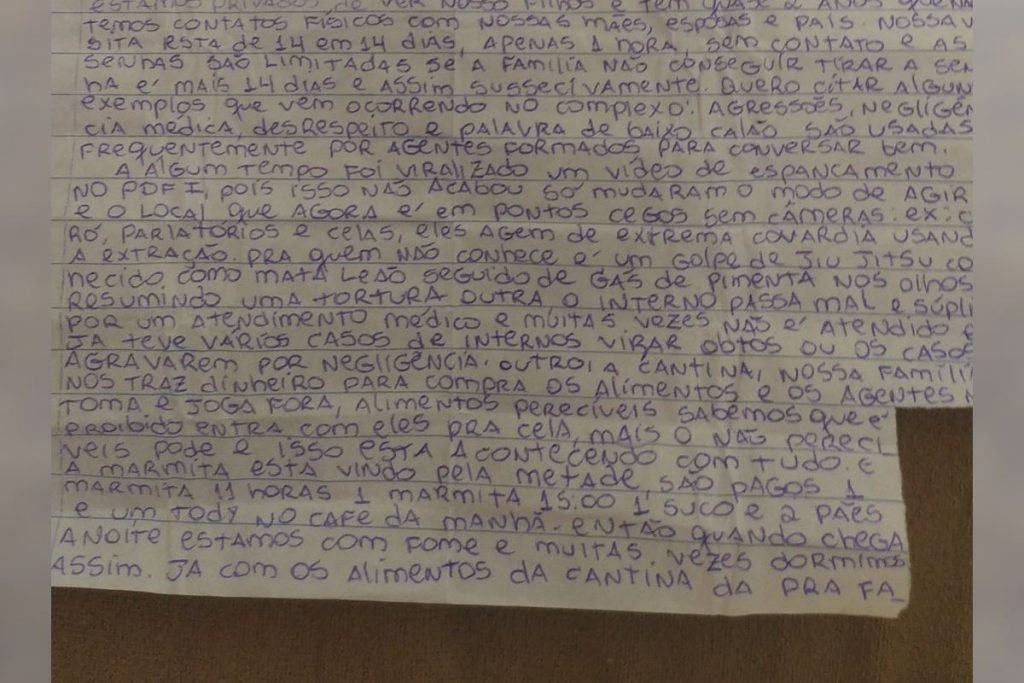 ESTAMOS PRIVADOS DE VER NOSSO FILHOS E TEM QUASE 2 ANOS QUE NÃ
TEMOS CONTATOS FÍSICOS COM NOSSAS MÃES, ESPOSAS E PAIS. NOSSA V
SITA ESTA DE 14 EM 14 DIAS, APENAS 1 HORA, SEM CONTATO E AS
SENHAS SÃO LIMITADAS SE A FAMILIA NÃO CONSEGUIR TIRAR A SEN
HA E' MAIS 14 DIAS E ASSIM SUSSECIVAMENTE. QUERO CITAR ALGUN
EXEMPLOS QUE VEM OCORRENDO NO COMPLEXO: AGRESSÕES, NEGLIGÊN
CIA MÉDICA, DESRESPEITO E PALAVRA DE BAIXO CALÃO SÃO USADAS
FREQUENTEMENTE POR AGENTES FORMADOS PARA CONVERSAR BEM.
A ALGUM TEMPO FOI VIRALIZADO UM VÍDEO DE ESPANCAMENTO
NO PDF I, POIS ISSO NÃO ACABOU SÓ MUDARAM O MODO DE AGIR
E O LOCAL QUE AGORA E' EM PONTOS CEGOS SEM CÂMERAS: EX: C
RÓ, PARLATÓRIOS E CELAS, ELES AGEM DE EXTREMA COVARDIA USAND
A EXTRAÇÃO. PRA QUEM NÃO CONHECE E' UM GOLPE DE JIU JITSU CO
NHECIDO COMO MATA LEÃO SEGUIDO DE GÁS DE PIMENTA NOS OLHOS
RESUMINDO UMA TORTURA OUTRA O INTERNO PASSA MAL E SÚPLI
POR UM ATENDIMENTO MÉDICO E MUITAS VEZES NÃO E' ATENDIDO E
JA TEVE VÁRIOS CASOS DE INTERNOS VIRAR OBTOS OU OS CASOS
AGRAVAREM POR NEGLIGÊNCIA. OUTRO: A CANTINA, NOSSA FAMILI
NOS TRAZ DINHEIRO PARA COMPRA OS ALIMENTOS E OS AGENTES N
TOMA E JOGA FORA, ALIMENTOS PERECÍVEIS SABEMOS QUE E'
PROIBIDO ENTRA COM ELES PRA CELA, MAIS O NÃO PERECI
VEIS PODE E ISSO ESTA ACONTECENDO COM TUDO. E
A MARMITA ESTA VINDO PELA METADE, SÃO PAGOS 1
MARMITA 11 HORAS 1 MARMITA 15:00 1 SUCO E 2 PÃES
E UM TODY NO CAFÉ DA MANHÃ. ENTÃO QUANDO CHEGA
A NOITE ESTAMOS COM FOME E MUITAS VEZES DORMIMOS
ASSIM. JA COM OS ALIMENTOS DA CANTINA DA PRA FA